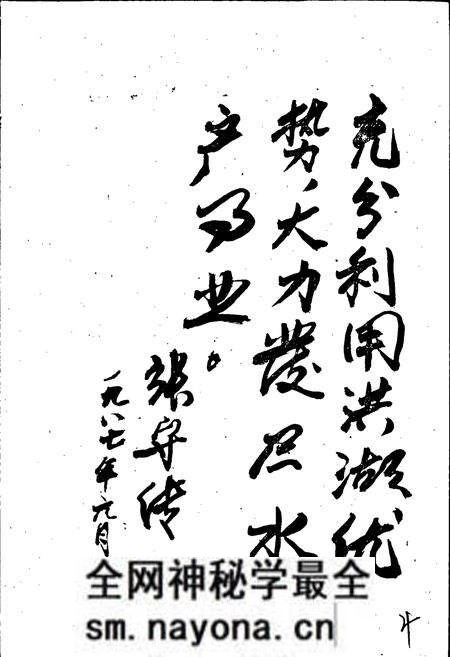 充分利用洪湖优
势、大力發展水
产事业。
張守传
一九八七年六月
全网神秘学最全
sm.nayona.cn